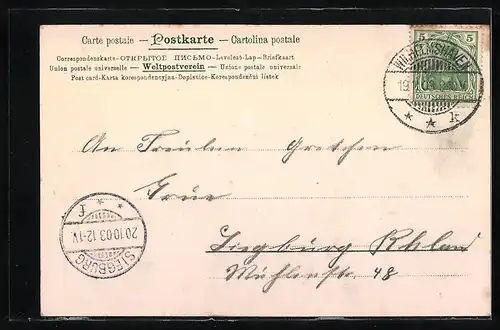 Carte postale — Postkarte — Cartolina postale
Correspondenzkarte—ОТКРЫТОЕ ПИСЬМО—Levelezö-Lap—Briefkaart
Union postale universelle — Weltpostverein — Unione postale universale
Post card-Karta korespondencyjna-Dopisnice-Korespondenční lístek
5 5
DEUTSCHES REICH
WILHELMSHAVEN
19
03
* * k
An Fräulein Gretchen
Grüe
Siegburg Rhlan
Mühlenstr. 48
SIEGBURG
20.10.03.12-1V.
* * f